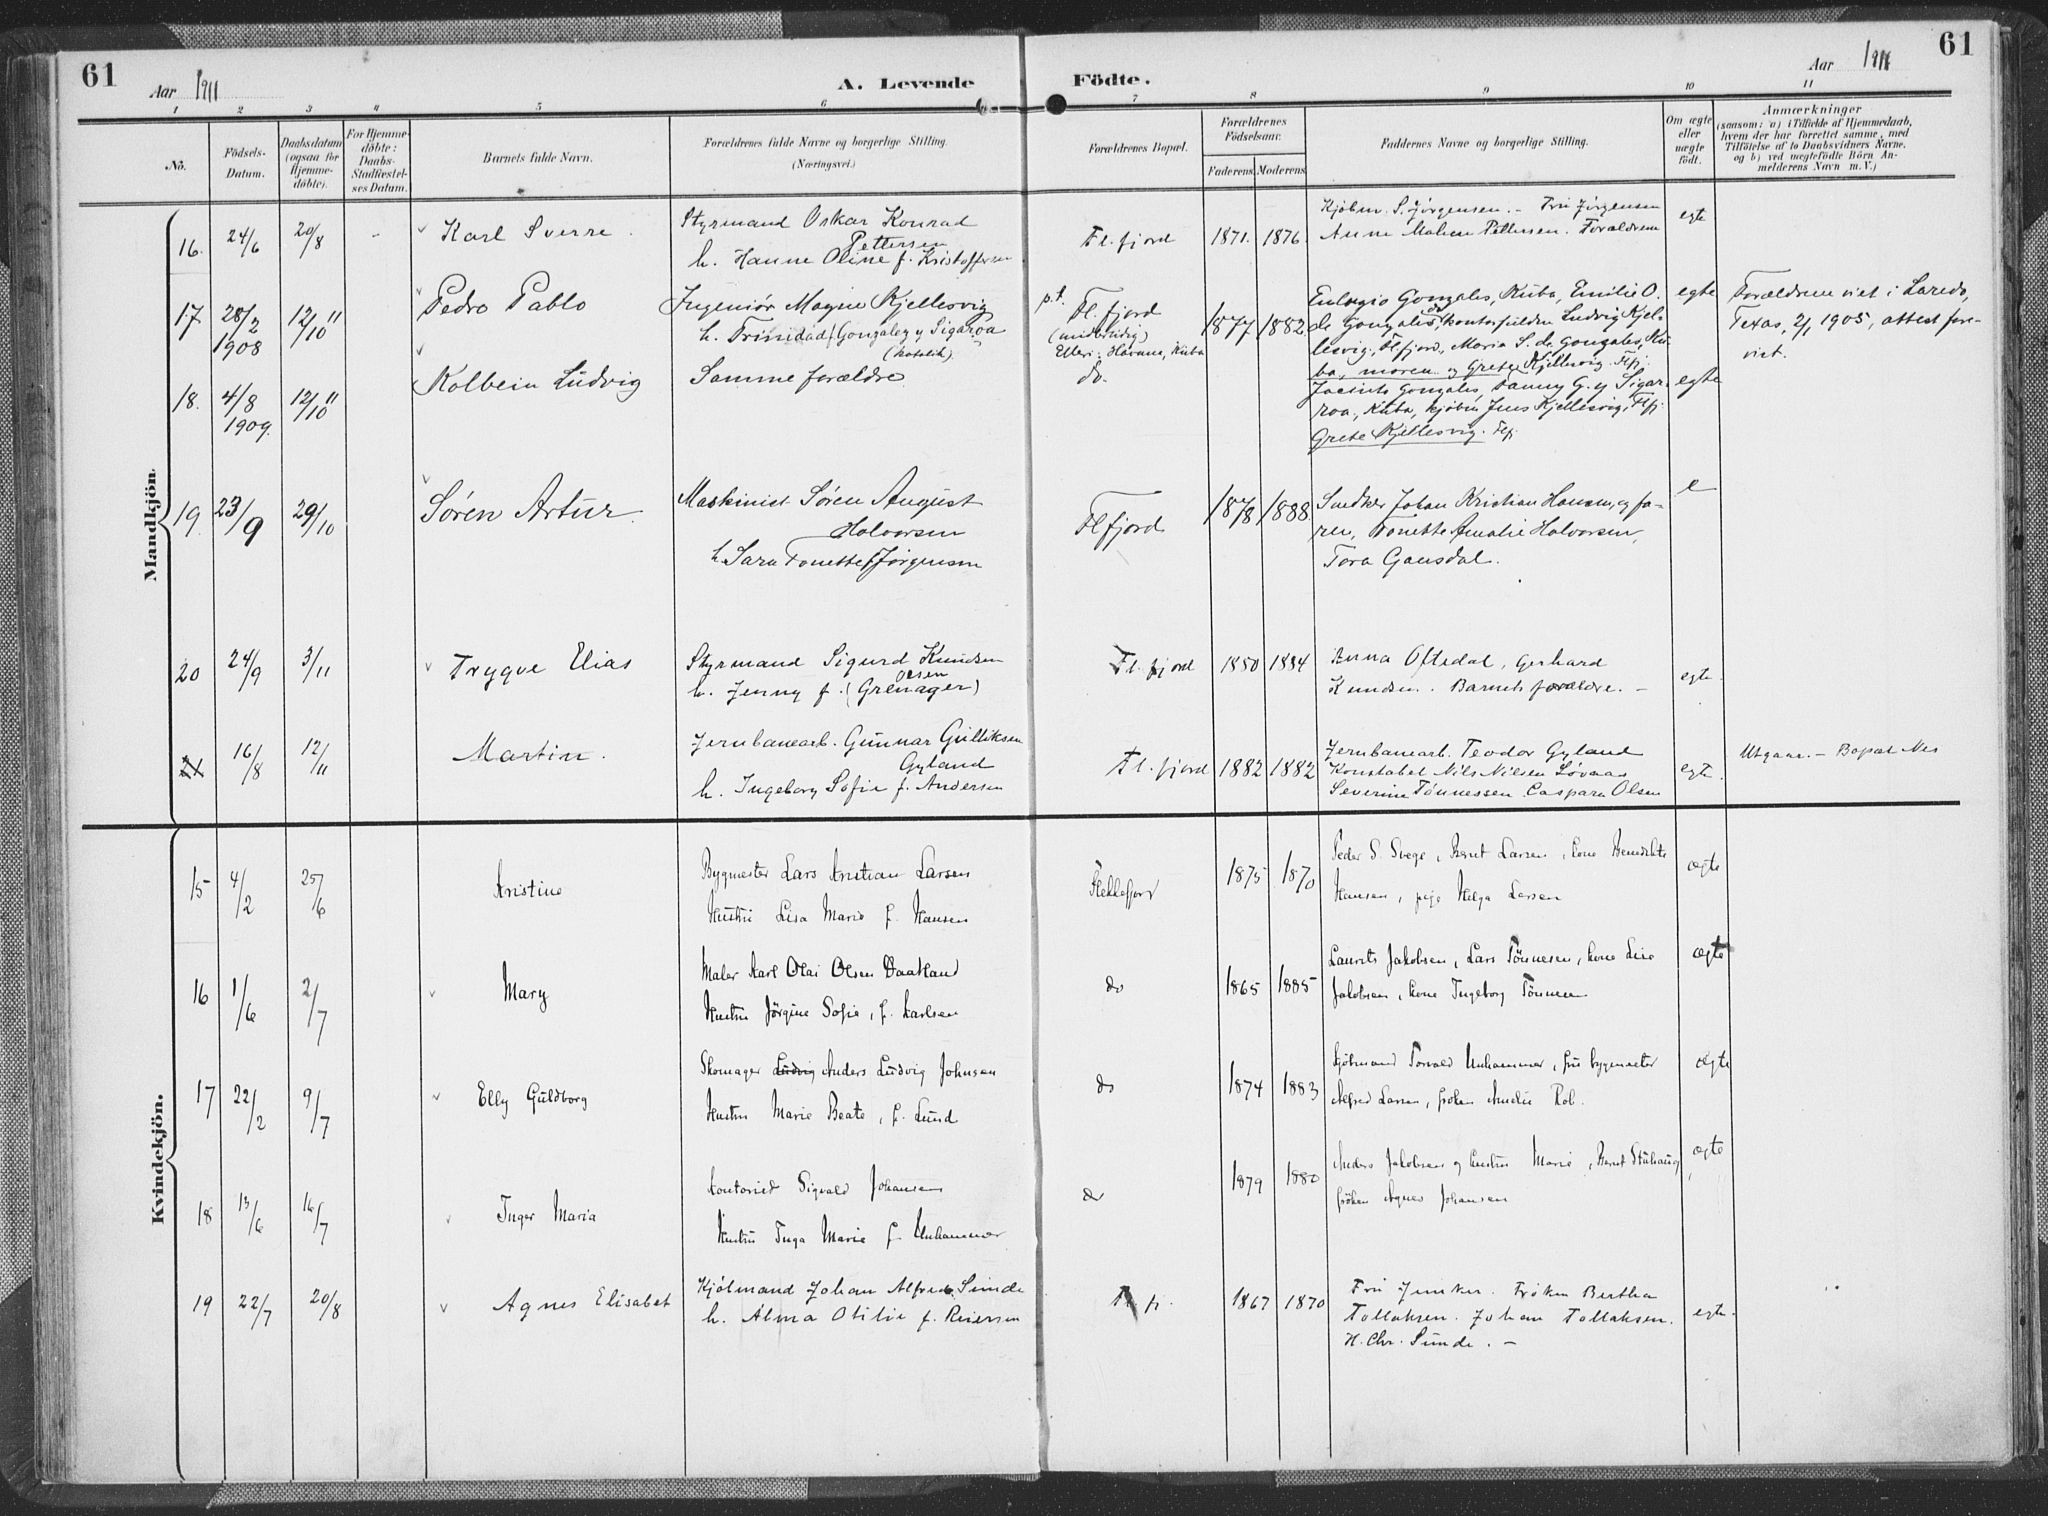 61
Aar 1911
A. Levende
Födte.
Aar 1911
61
1 2 3 4 5 6 7 8 9 10 11
No.
Födsels-
Datum.
Daabsdatum
(ogsaa for
Hjemme-
döbte).
For Hjemme-
döbte:
Daabs-
Stadfæstel-
ses Datum.
Barnets fulde Navn.
Forældrenes fulde Navne og borgerlige Stilling.
(Næringsvei.)
Forældrenes Bopæl.
Forældrenes
Födselsaar.
Faderens. Moderens.
Faddernes Navne og borgerlige Stilling.
Om ægte
eller
uægte
födt.
Anmærkninger
(saasom: a) i Tilfælde af Hjemmedaab,
hvem der har forrettet samme, med
Tilföielse af to Daabsvidners Navne.
og b) ved uægtefödte Börn An-
melderens Navn m. V.)
Mandkjön.
16. 24/6 20/8 - Karl Sverre.
Styrmand Oskar Konrad
Pettersen
h. Hanne Oline f. Kristoffersen
Fl.fjord 1871. 1876.
Kjøbm. S. Jørgensen. - Fru Jørgensen
Anne Malene Pettersen. Forældrene
egte
17 28/2 1908 12/10 11 Pedro Pablo
Ingeniør Magne Kjellesvig
h. Trinidad f. Gonzalez y Sigaroa
(katolik).
p.t. Fl.fjord
(midlertidig)
Ellers: Havana, Kuba
1877 1882
Eulogio Gonzales, Kuba, Emilie O.
de Gonzales, do, kontorfuldm. Ludvig Kjel-
lesvig, Fl.fjord, Maria S. de Gonzales, Ku-
ba, moren og Grete Kjellesvig. Flfj.
egte
Forældrene viet i Laredo,
Texas, 2/1 1905, attest fore-
vist.
18. 4/8 1909. 12/10 11 Kolbein Ludvig
Samme forældre
do.
Jacinto Gonzales, Fanny G. y Sigar-
roa, Kuba, kjøbm Jens Kjellesvig, Flfj.
Grete Kjellesvig. Flfj.
egte
19. 23/9 29/10 Søren Artur.
Maskinist Søren August
Halvorsen
h. Sara Tonette f. Jørgensen
Flfjord 1878 1888
Snedker Johan Kristian Hansen, og fa-
ren, Tonette Amalie Halvorsen,
Tora Gausdal.
e
20 24/9 3/11 Trygve Elias
Styrmand Sigurd Knudsen
h. Jenny f. Olsen (Grenager)
Fl.fjord 1850 1884
Anna Oftedal, Gerhard
Knudsen. Barnets forældre. -
egte.
21 16/8 12/11 Martin.
Jernbanearb. Gunnar Gulliksen
Gyland
h. Ingeborg Sofie f. Andersen
Fl.fjord 1882 1882
Jernbanearb. Teodor Gyland
Konstabel Nils Nilsen Løvaas
Severine Tønnessen. Caspara Olsen
egte.
Utgaar. - Bopæl Nes
Kvindekjön.
15 4/2 25/6 Kristine
Bygmester Lars Kristian Larsen
Hustru Lisa Marie f. Hansen
Flekkefjord 1875 1870
Peder S. Svege, Bernt Larsen, kone Benedikte
Hansen, pige Helga Larsen
ægte
16 1/6 2/7 Mary
Maler Karl Olai Olsen Daatland
Hustru Jörgine Sofie, f. Karlsen
do 1865 1885
Laurits Jakobsen, Lars Tönnesen, kone Lise
Jakobsen, kone Ingeborg Tönnesen
ægte
17 22/2 9/7 Elly Guldborg
Skomager Ludvig Anders Ludvig Johnsen
Hustru Marie Beate, f. Lund
do 1874 1883
Kjöbmand Torvald Unhammer, fru bygmester
Alfred Larsen, fröken Amelie Rob.
ægte
18 13/6 16/7 Inger Maria
Kontorist Sigvald Johansen
Hustru Inga Marie f. Unhammer
do 1879 1880
Anders Jakobsen og hustru Marie, Bernt Stuhaug
fröken Agnes Johansen
ægte
19 22/7 20/8 Agnes Elisabet
Kjöbmand Johan Alfred Sunde
h. Alma Otilie f. Reiersen
Fl. fj. 1867 1870
Fru Junker. Frøken Bertha
Tollaksen. Johan Tollaksen.
H. Chr. Sunde. -
egte.